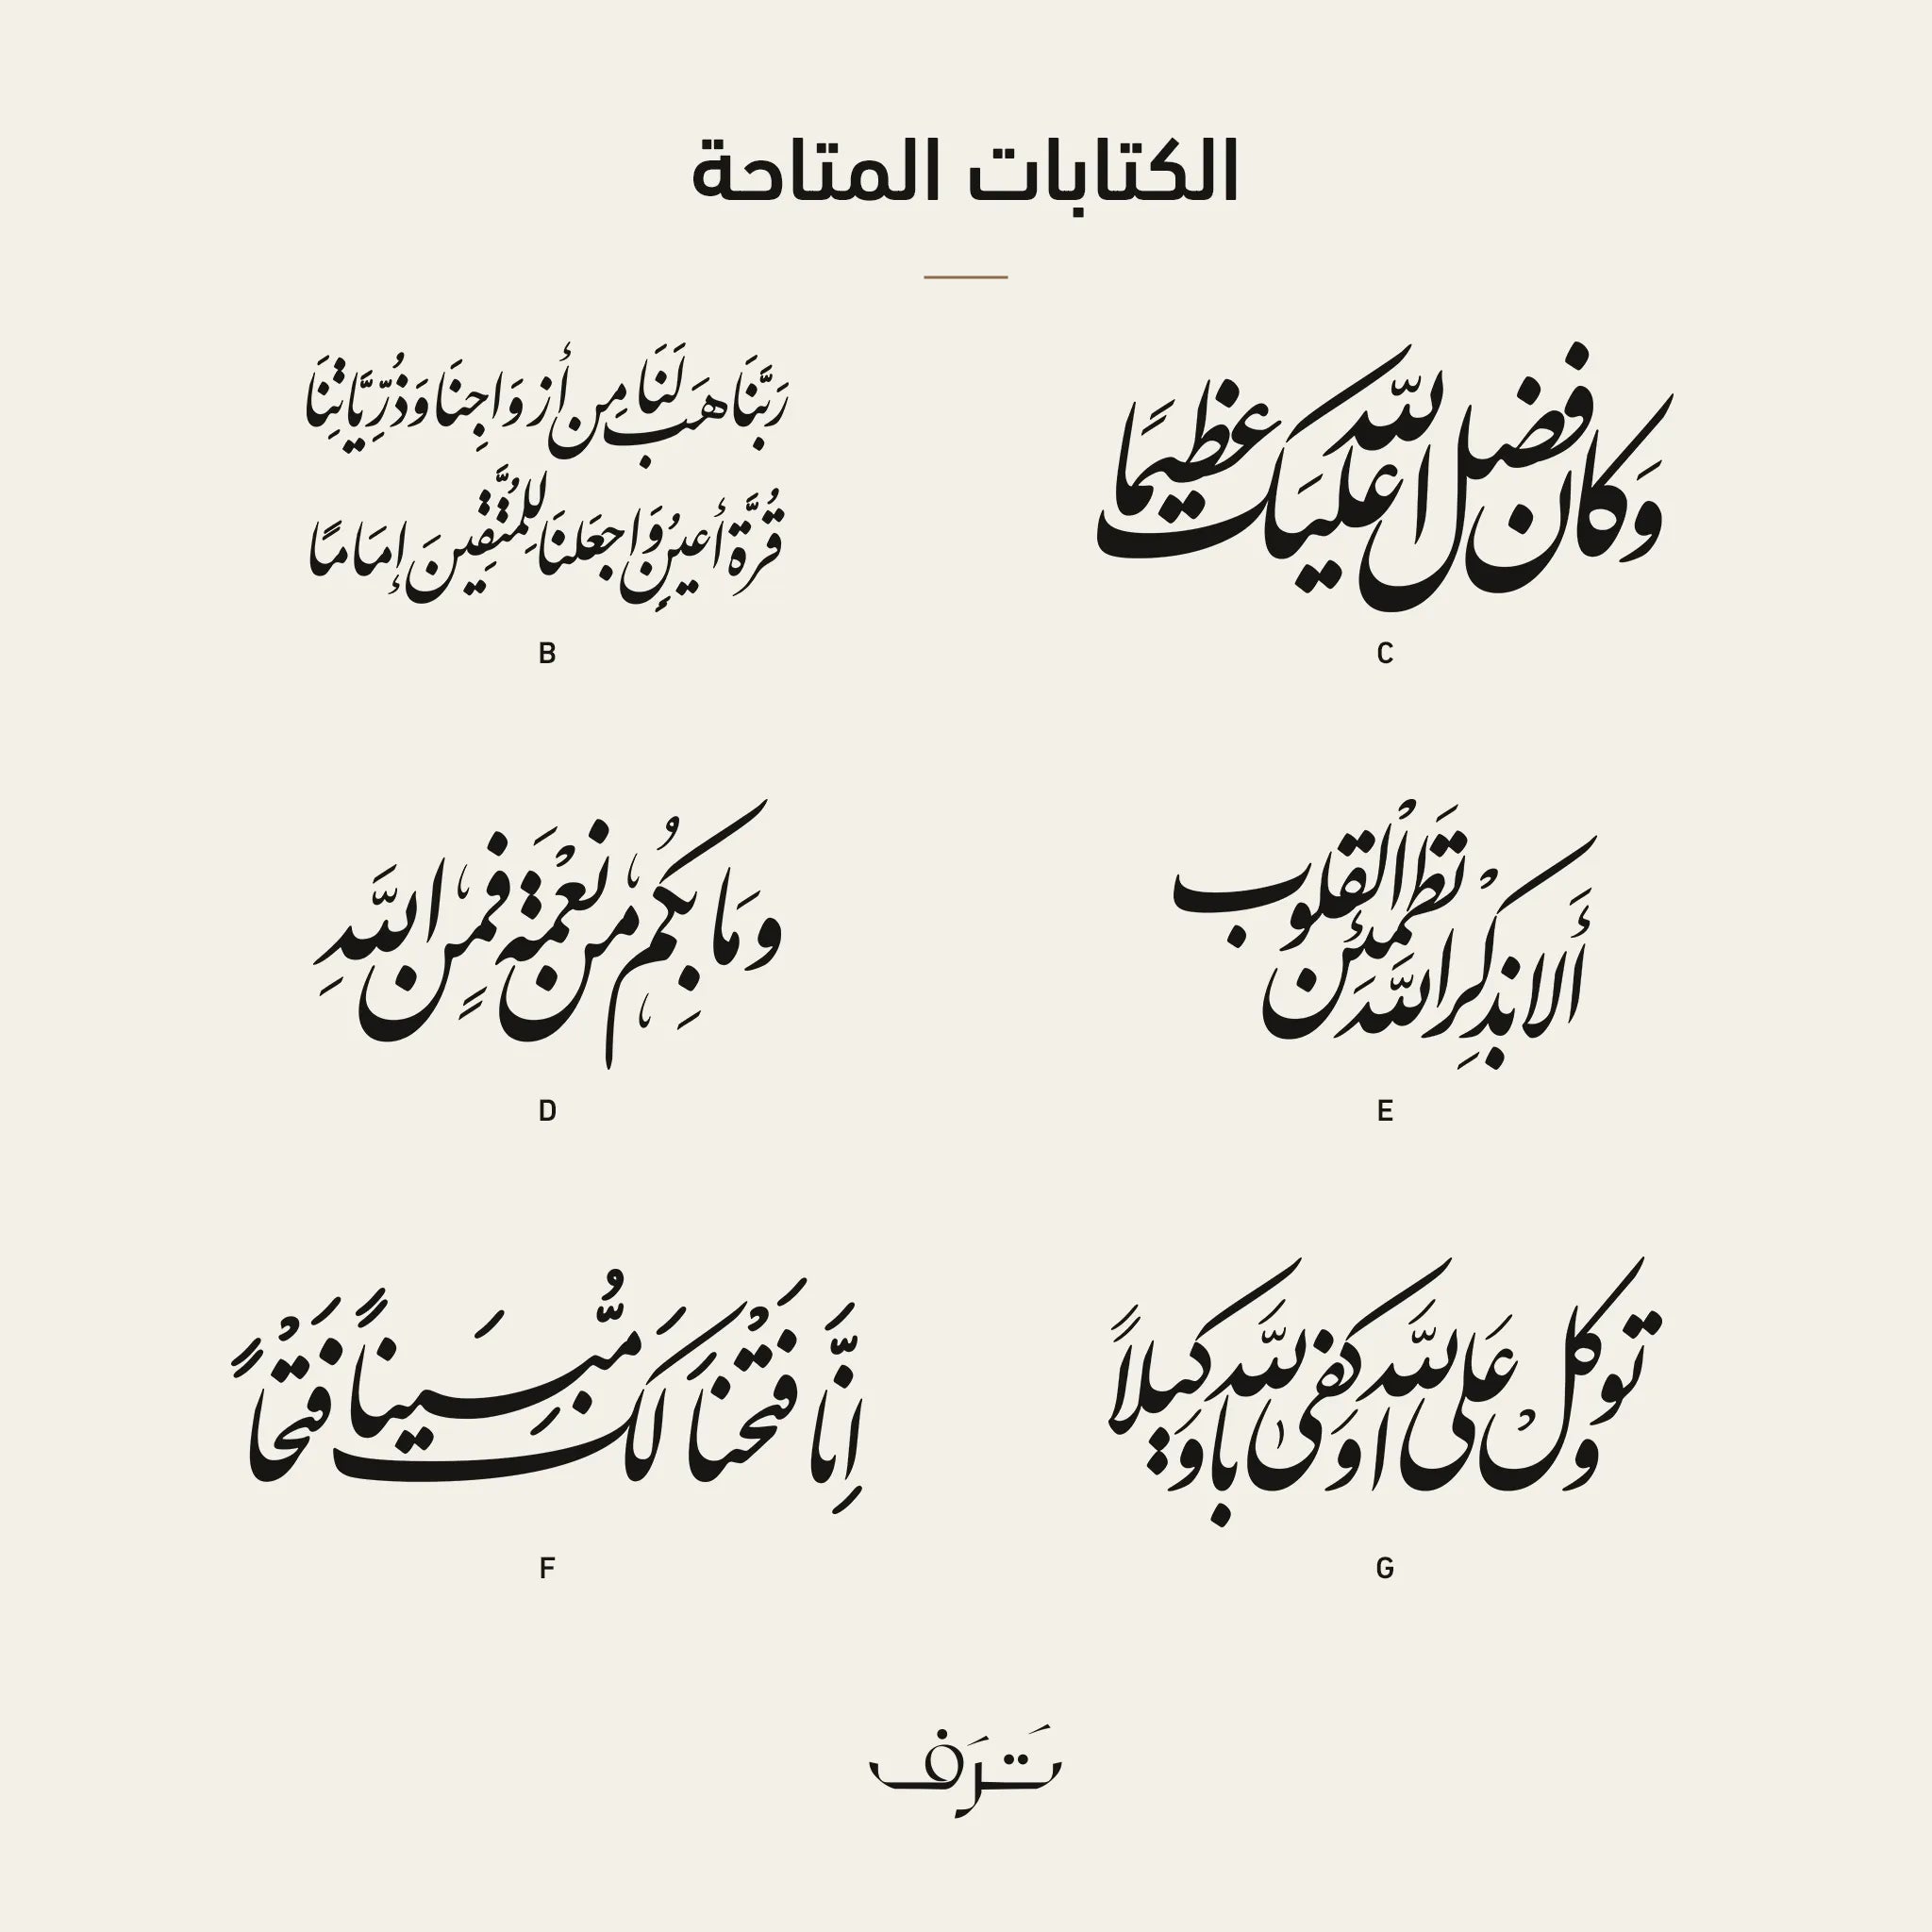 الكتابات المتاحة
وَكَانَ فَضْلُ اللَّهِ عَلَيْكَ عَظِيمًا
C
رَبَّنَا هَبْ لَنَا مِنْ أَزْوَاجِنَا وَذُرِّيَّاتِنَا
قُرَّةَ أَعْيُنٍ وَاجْعَلْنَا لِلْمُتَّقِينَ إِمَامًا
B
أَلَا بِذِكْرِ اللَّهِ تَطْمَئِنُّ الْقُلُوبُ
E
وَمَا بِكُمْ مِنْ نِعْمَةٍ فَمِنَ اللَّهِ
D
وَتَوَكَّلْ عَلَى اللَّهِ وَكَفَىٰ بِاللَّهِ وَكِيلًا
G
إِنَّا فَتَحْنَا لَكَ فَتْحًا مُّبِينًا
F
تَرَف